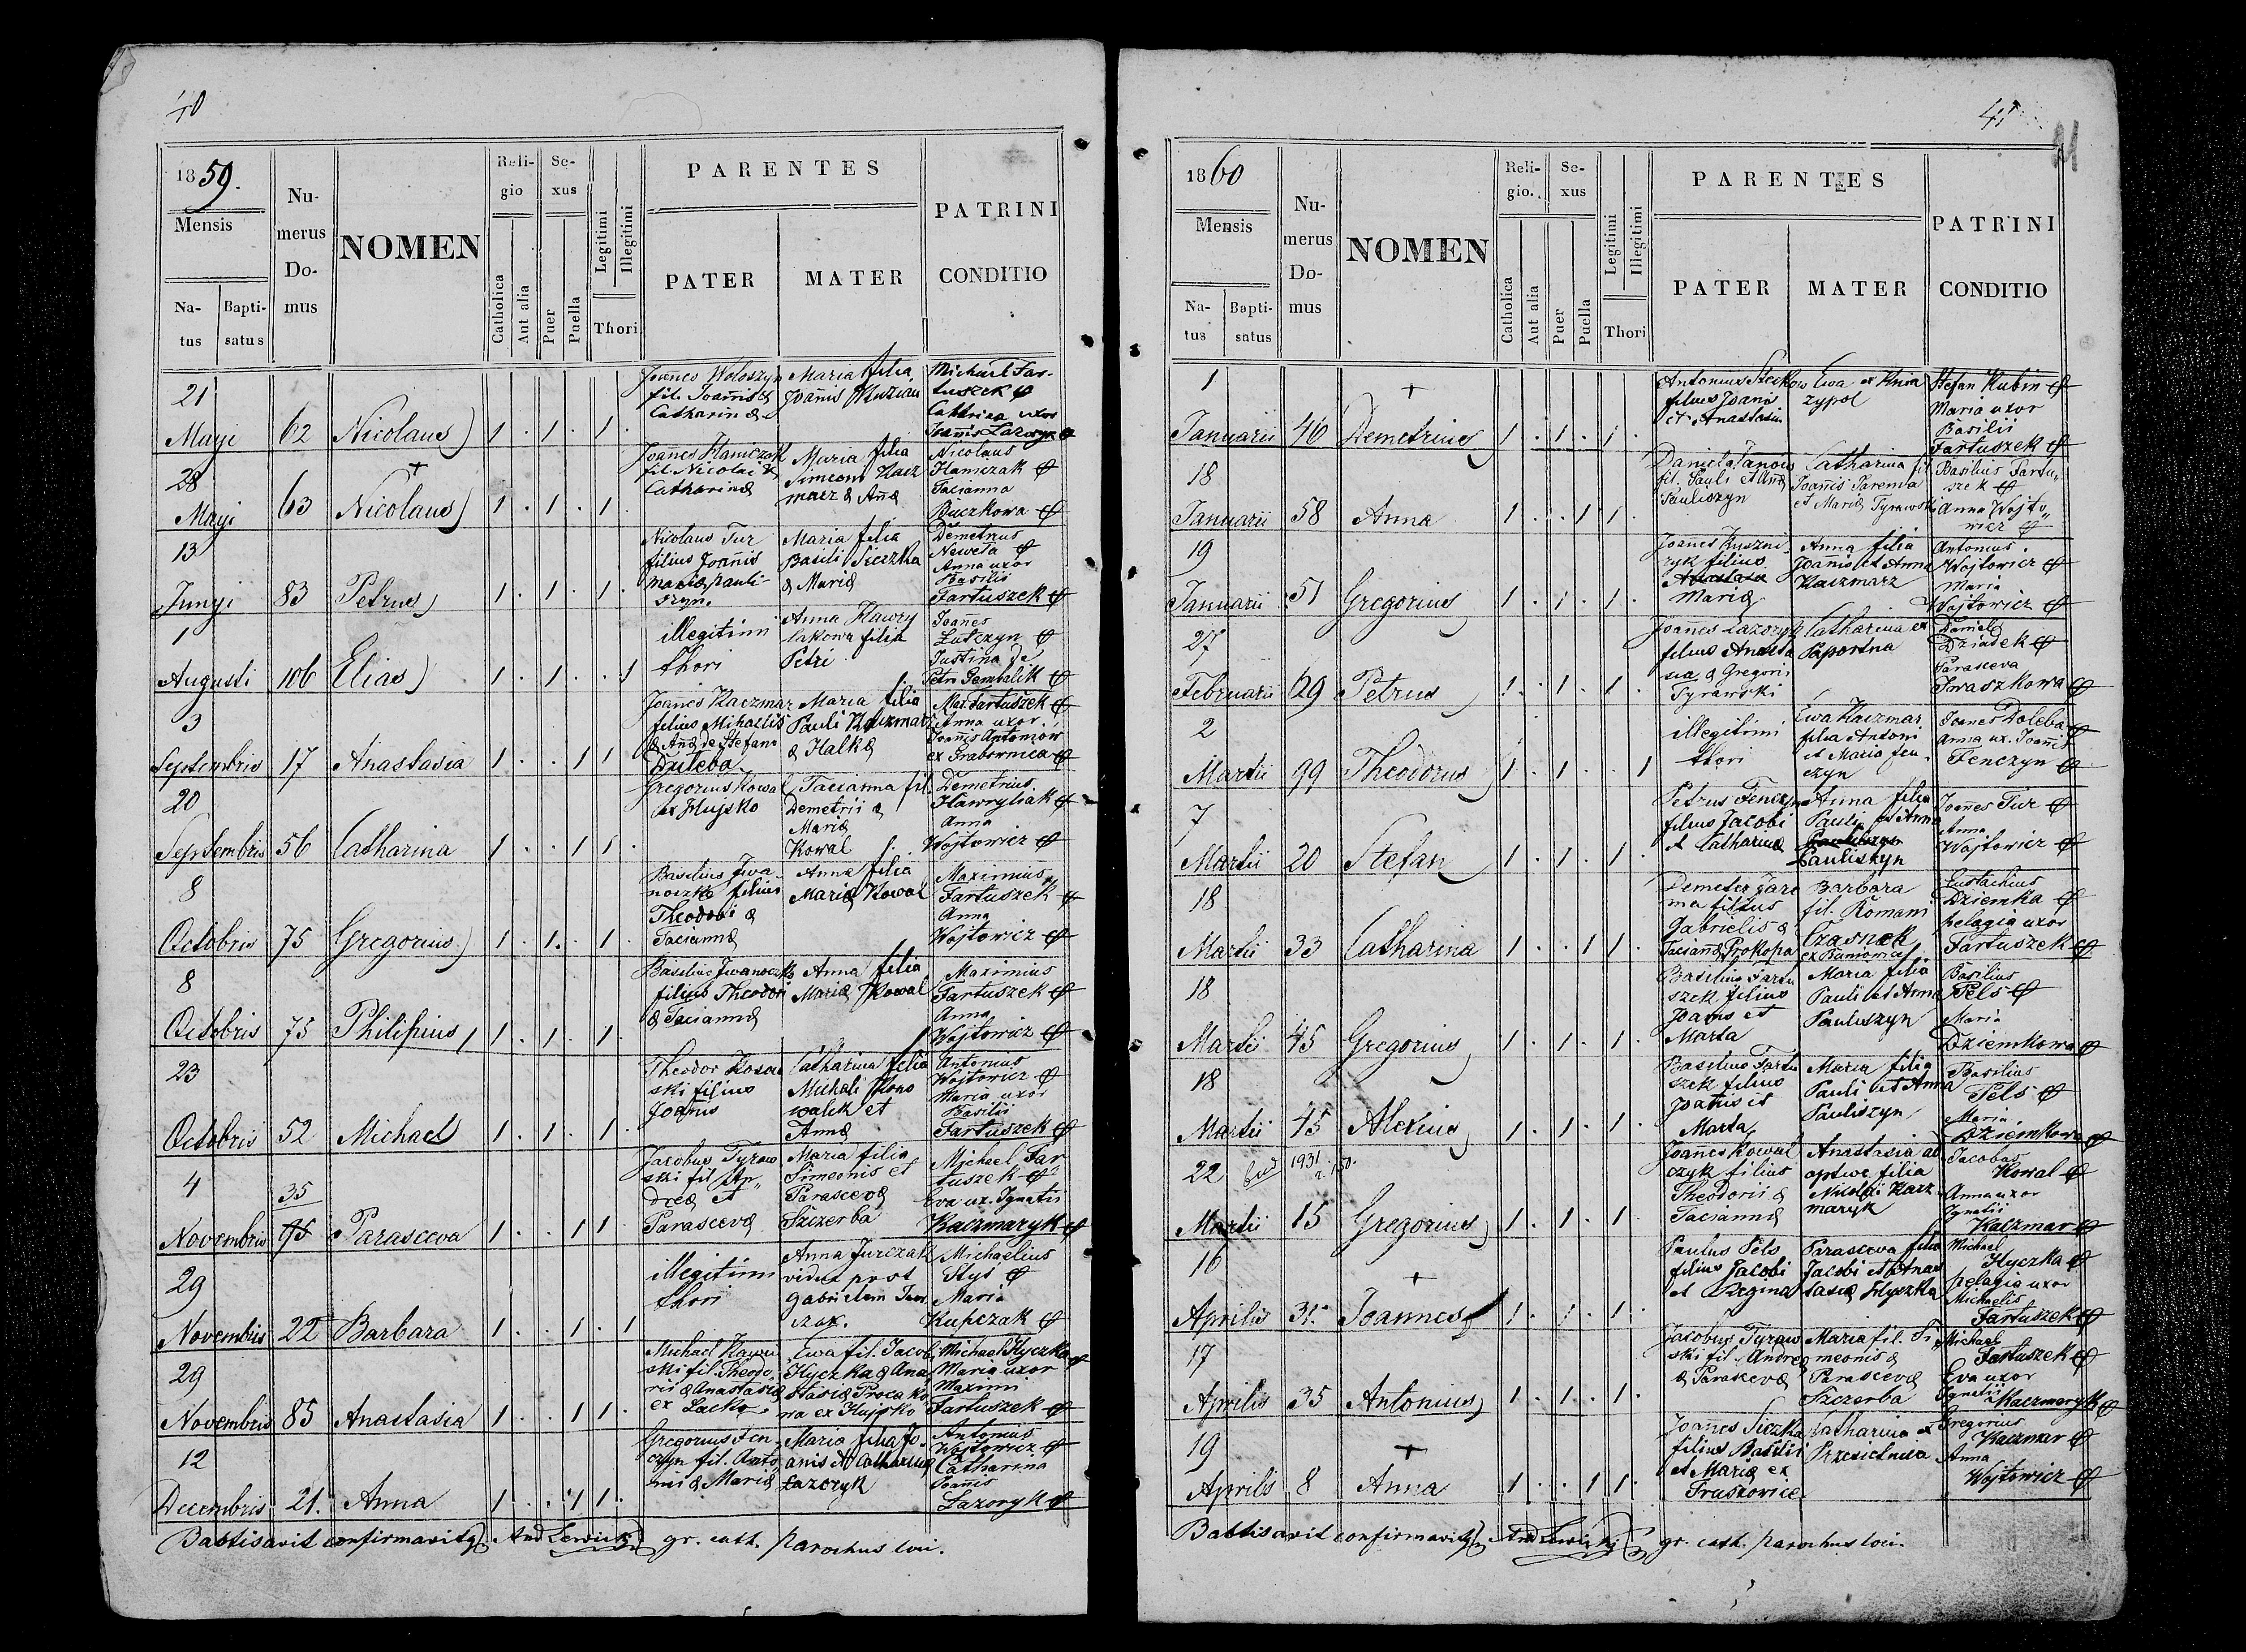 40
1859.
Mensis
Na-
tus
Bapti-
satus
Nu-
merus
Do-
mus
NOMEN
Reli-
gio
Catholica
Aut alia
Se-
xus
Puer
Puella
Legitimi
Illegitimi
Thori
PARENTES
PATER
MATER
PATRINI
CONDITIO
21
Mayi 62 Nicolaus 1 . 1 . 1 .
Joanes Woloszyn
fil. Joanis &
Catharinæ
Maria filia
Joanis
Michael Far-
tuszek
Cathrina uxor
Joanis Lazoryk
28
Mayi 63 Nicolaus 1 . 1 . 1 .
Joanes Hamczak
fil. Nicolai &
Catharinæ
Maria filia
Simeoni Kacz
marz & Anæ
Nicolaus
Hamczak
Tacianna
Buczkowa
13
Junyi 83 Petrus 1 . 1 . 1 .
Nicolaus Tur
filius Joanis
Mariæ Pauli-
szyn.
Maria filia
Basili Siczka
& Mariæ
Demetrius
Anna uxor
Basilii
Fartuszek
1
Augusti 106 Elias 1 . 1 . . 1
illegitimi
thori
Anna Hawry
lakowa filia
Petri
Joanes
Lutczyn
Justina de
Petri Gembalik
3
Septembris 17 Anastasia 1 . . 1 1
Joanes Kaczmar
filius Mihaelis
& Anæ de Stefano
Duleba
Maria filia
Pauli Kaczmarz
& Halkæ
Max Fartuszek
Anna uxor
Joanis Antoniow
ex Grabownica
20
Septembris 56 Catharina 1 . . 1 1
Gregorius Kowal
ex Hujsko
Tacianna fil.
Demetrii &
Mariæ
Kowal
Demetrius
Hawryliak
Anna
Wojtowicz
8
Octobris 75 Gregorius 1 . 1 . 1 .
Basilius Iwa-
noczko filius
Theodori &
Taciannæ
Anna filia
Mariæ Kowal
Maximius
Fartuszek
Anna
Wojtowicz
8
Octobris 75 Philipius 1 . 1 . 1 .
Basilius Iwanoczko
filius Theodori
& Taciannæ
Anna filia
Mariæ Kowal
Maximius
Fartuszek
Anna
Wojtowicz
23
Octobris 52 Michael 1 . 1 . 1 .
Theodor
ski filius
Joanis
Catharina filia
Michali Kono
walek et
Annæ
Antonius
Wojtowicz
Maria uxor
Basilii
Fartuszek
4
35
Novembris 75 Parasceva 1 . . 1 1 .
Jacobus Tyraw
ski fil. An-
dreæ et
Parascevæ
Maria filia
Simeonis et
Parascevæ
Szczerba
Michael Far
tuszek
Eva ux. Ignatii
Kaczmaryk
29
Novembris 22 Barbara 1 . . 1 . 1
illegitimi
thori
Anna Jurczak
vidua post
Gabrielem
Michaelius
Styś
Maria
Kupczak
29
Novembris 85 Anastasia 1 . . 1 1 .
Michael
ski fil. Theodo
rii & Anastasiæ
ex Lacko
Ewa fil. Jacobi
Hyczka & Ana
stasiæ
na ex Hujsko
Michael Hyczka
Maria uxor
Maximi
Fartuszek
12
Decembris 21. Anna 1 . . 1 1 .
Gregorius Fen
czyn fil. Anto
nii & Mariæ
Maria filia Jo-
anis et Catharinæ
Lazoryk
Antonius
Wojtowicz
Catharina
Joanis
Lazoryk
Babtisavit confirmavitq And Lewicki gr. cath. parochus loci.
41
1860
Mensis
Na-
tus
Bapti-
satus
Nu-
merus
Do-
mus
NOMEN
Reli-
gio.
Catholica
Aut alia
Se-
xus
Puer
Puella
Legitimi
Illegitimi
Thori
PARENTES
PATER
MATER
PATRINI
CONDITIO
1
Januarii 46 Demetrius 1 . 1 . 1 .
Antonius Steckow
filius Joanis
et Anastasia
Ewa ex Knia
zypol
Stefan Kubin
Maria uxor
Basilii
Fartuszek
18
Januarii 58 Anna 1 . . 1 1 .
Daniel Janow
fil. Pauli et Anæ
Pauliszyn
Catharina fil
Joanis Jarema
et Mariæ Tyrawski
Basilius Fartu-
szek
Anna Wojto-
wicz
19
Januarii 51 Gregorius 1 . 1 . 1 .
Joanes Kuszni
ryk filius
Mariæ
Anna filia
Joanis et Anna
Kaczmarz
Antonius
Wojtowicz
Maria
Wojtowicz
27
Februarii 29 Petrus 1 . 1 . 1 .
Joanes Lazoryk
filius Anasta
siæ & Gregorii
Tyrawski
Catharina ex
Paportna
Daniel
Dziadek
Parasceva
Iwaszkowa
2
Martii 99 Theodorus 1 . 1 . . 1
illegitimi
thori
Ewa Kaczmar
filia Antoni
et Maria Fen-
czyn
Joanes Doleba
Anna ux. Joanis
Fenczyn
7
Martii 20 Stefan 1 . 1 . 1 .
Petrus Fenczyn
filius Jacobi
et Catharinæ
Anna filia
Pauli et Anna
Pauliszyn
Joanes Tur
Anna
Wojtowicz
18
Martii 33 Catharina 1 . . 1 1 .
Demeter Jare
ma filius
Gabrielis &
Tacianæ Prokopa
Barbara
fil. Romani
Czasnek
Eustachius
Dziemka
pelagia uxor
Fartuszek
18
Martii 45 Gregorius 1 . 1 . 1 .
Basilius Fartu
szek filius
Joanis et
Marta
Maria filia
Pauli et Anna
Pauliszyn
Basilius
Pels
Maria
Dziemkowa
18
Martii 45 Alexius 1 . 1 . 1 .
Basilius Fartu
szek filius
Joanis et
Marta
Maria filia
Pauli et Anna
Pauliszyn
Basilius
Pels
Maria
Dziemkowa
22
1931
Martii 15 Gregorius 1 . 1 . 1 .
Joanes Kowal
czyk filius
Theodorii &
Taciannæ
Anastasia ad
optive filia
Nicolai Kacz
maryk
Jacobus
Kowal
Anna uxor
Ignatii
Kaczmar
16
Aprilis 31. Joannes 1 . 1 . 1 .
Paulus Pels
filius Jacobi
et Regina
Parasceva filia
Jacobi et Anas
tasiæ Hyczka
Michael
Hyczka
pelagia uxor
Michaelis
Fartuszek
17
Aprilis 35 Antonius 1 . 1 . 1 .
Jacobus Tyraw
ski fil. Andreæ
& Parascevæ
Maria fil. Si
meonis &
Parascevæ
Szczerba
Michael
Fartuszek
Eva uxor
Ignatii
Kaczmaryk
19
Aprilis 8 Anna 1 . . 1 1 .
Joanes Siczka
filius Basilii
et Mariæ ex
Truszowice
Catharina ex
Gregorius
Kaczmar
Anna
Wojtowicz
Babtisavit confirmavitq And Lewicki gr. cath. parochus loci.